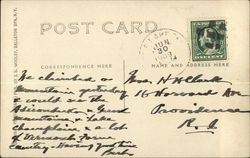 POST CARD
CORRESPONDENCE HERE
NAME AND ADDRESS HERE
JUN
30
We climbed a
mountain yesterday
& could see the
Adirondack & Green
mountains & Lake
Champlain & a lot
of Vermont Farm
Country - Having good time
Mrs. H. H. Clark
16 Harvard Ave
Providence
R. I.